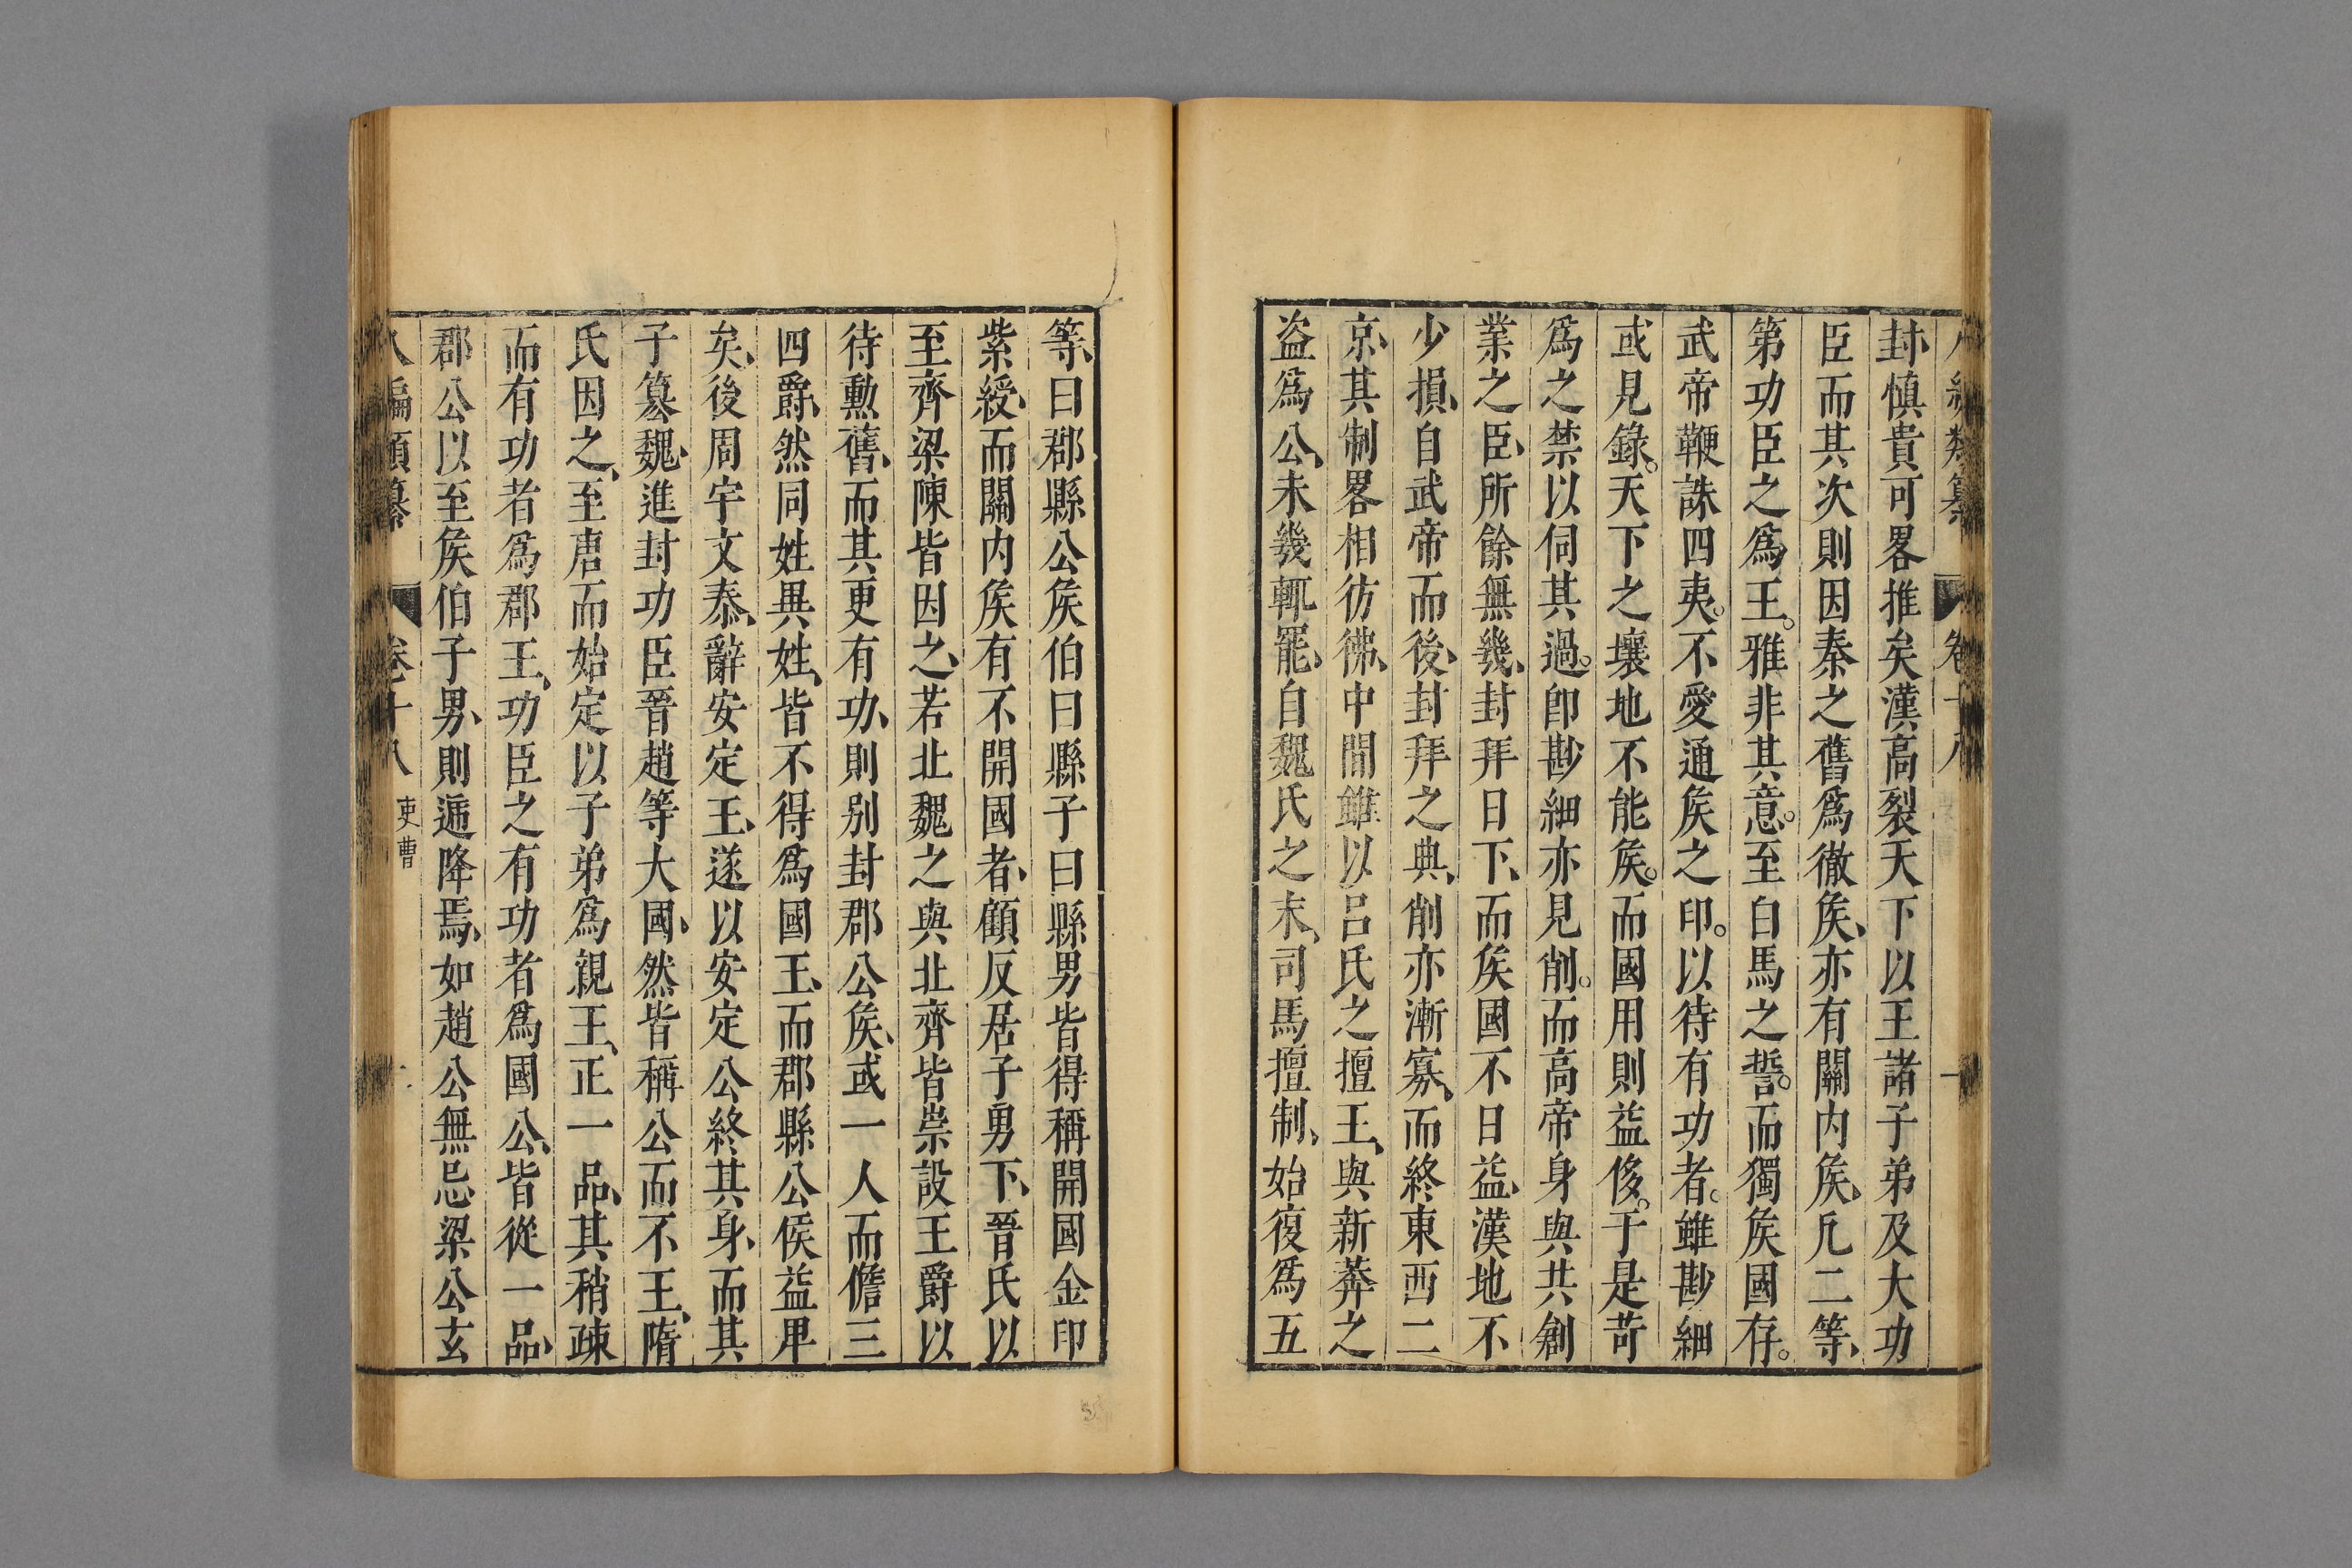 封愼貴可畧推矣漢高裂天下以王諸子弟及大功
臣而其次則因秦之舊爲徹矦、亦有關内矦、凢二等、
第功臣之爲王。雅非其意。至白馬之誓。而獨矦國存。
武帝鞭誅四夷。不愛通矦之印。以待有功者。雖尠細
或見錄。天下之壤地不能矦。而國用則益侈。于是苛
爲之禁以伺其過。卽尠細亦見削。而高帝身與共創
業之臣、所餘無幾、封拜日下、而矦國不日益、漢地不
少損、自武帝而後、封拜之典、削亦漸寡、而終東西二
京、其制畧相彷彿、中間雖以呂氏之擅王、與新莽之
盗爲公、未幾輒罷、自魏氏之末、司馬擅制、始復爲五
等、曰郡縣公矦伯曰縣子曰縣男皆得稱開國金印
紫綬、而關内矦有不開國者、顧反居子男下、晉氏以
至齊梁陳皆因之、若北魏之與北齊皆崇設王爵以
待勲舊、而其更有功、則别封郡公矦、或一人而儋三
四爵、然同姓異姓、皆不得爲國王、而郡縣公侯益𤰞
矣、後周宇文泰、辭安定王、遂以安定公終其身、而其
子簒魏、進封功臣晉趙等大國、然皆稱公而不王、隋
氏因之、至唐而始定以子弟爲親王、正一品、其稍疎
而有功者爲郡王、功臣之有功者爲國公、皆從一品、
郡公以至矦伯子男、則遞降焉、如趙公無忌梁公玄
八編類纂 卷十八 吏曹 二